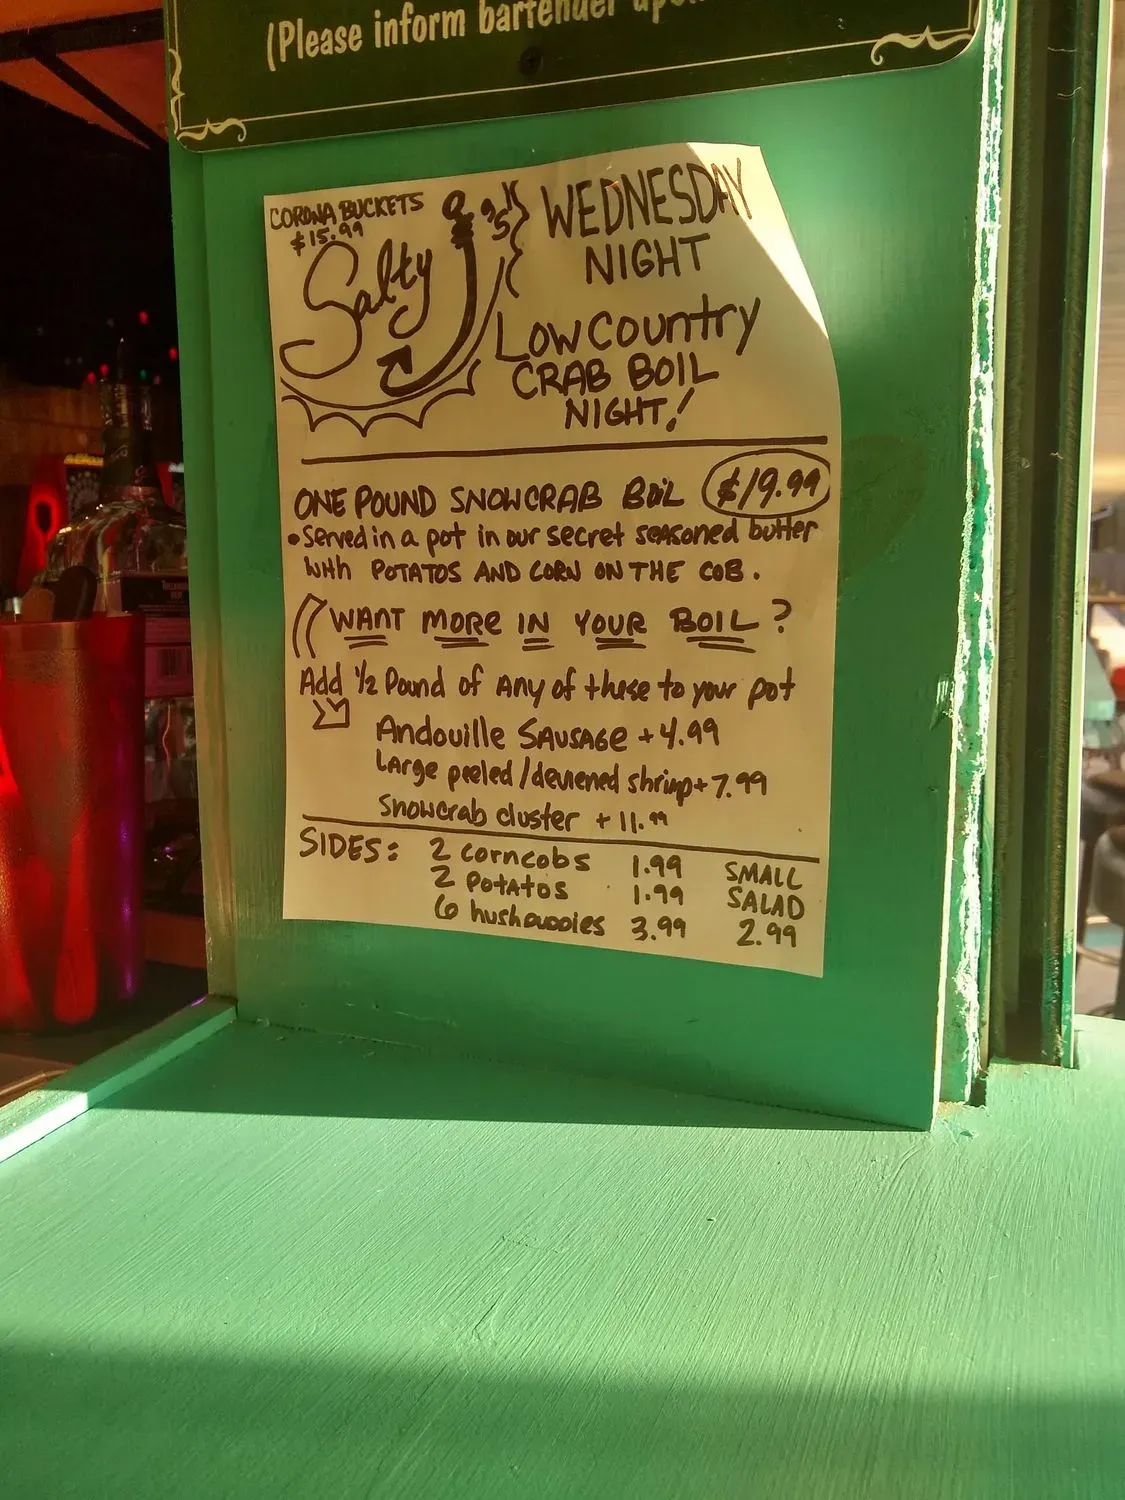 (Please inform bartender upon
CORONA BUCKETS
$15.99
Salty J 's
WEDNESDAY
NIGHT
LOW COUNTRY
CRAB BOIL
NIGHT!
ONE POUND SNOWCRAB BOIL $19.99
• Served in a pot in our secret seasoned butter
with POTATOS AND CORN ON THE COB.
WANT MORE IN YOUR BOIL?
Add 1/2 Pound of Any of these to your pot
Andouille SAUSAGE + 4.99
Large peeled/deviened shrimp + 7.99
Snowcrab cluster + 11.99
SIDES: 2 corncobs 1.99
2 POTATOS 1.99
6 hushpuppies 3.99
SMALL
SALAD
2.99